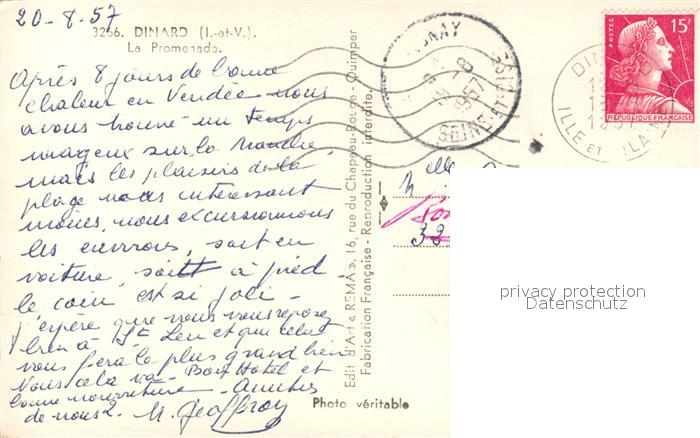 20-8-57
3256. DINARD (I.-et-V.).
La Promenade.
Après 8 jours de bonne
chaleur en Vendée nous
avons trouvé un temps
nuageux sur la Manche,
mais les plaisirs de la
plage nous intéressant
moins, nous excursionnons
les environs, soit en
voiture, soit à pied
le coin est si joli -
J'espère que vous vous reposez
bien à St Leu et que cela
vous fera le plus grand bien
Nous cela va - Bon Hotel et
bonne nourriture - Amitiés
de nous 2. M. Geoffroy
Edit. d'Art « REMA », 16, rue du Chapeau-Rouge - Quimper
Fabrication Française - Reproduction interdite.
Photo véritable
8
1957
SEINE ET OISE
POSTES
15F
REPUBLIQUE FRANÇAISE
DIN
ILLE ET
Mlle
38
privacy protection
Datenschutz